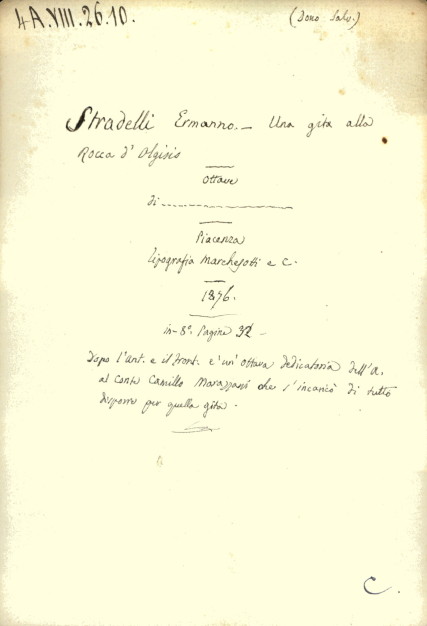 4A.VIII.26.10.
(Dono Salv.)
Stradelli Ermanno. — Una gita alla
Rocca d'Olgisio
Ottave
di
Piacenza
Tipografia Marchesotti e C.
1876.
in-8°. Pagine 32 —
Dopo l'ant. e il front. c'è un'ottava dedicatoria dell'A.
al conte Camillo Marazzani che s'incaricò di tutto
disporre per quella gita.
C.